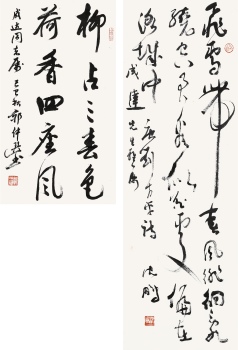 柳占三春色
荷香四座风
成达同志属 己巳秋 郭仲选书
飛雪帶春風徘徊亂
繞空君看似花處偏在
洛城中 唐劉方平詩
成達先生
沈鹏